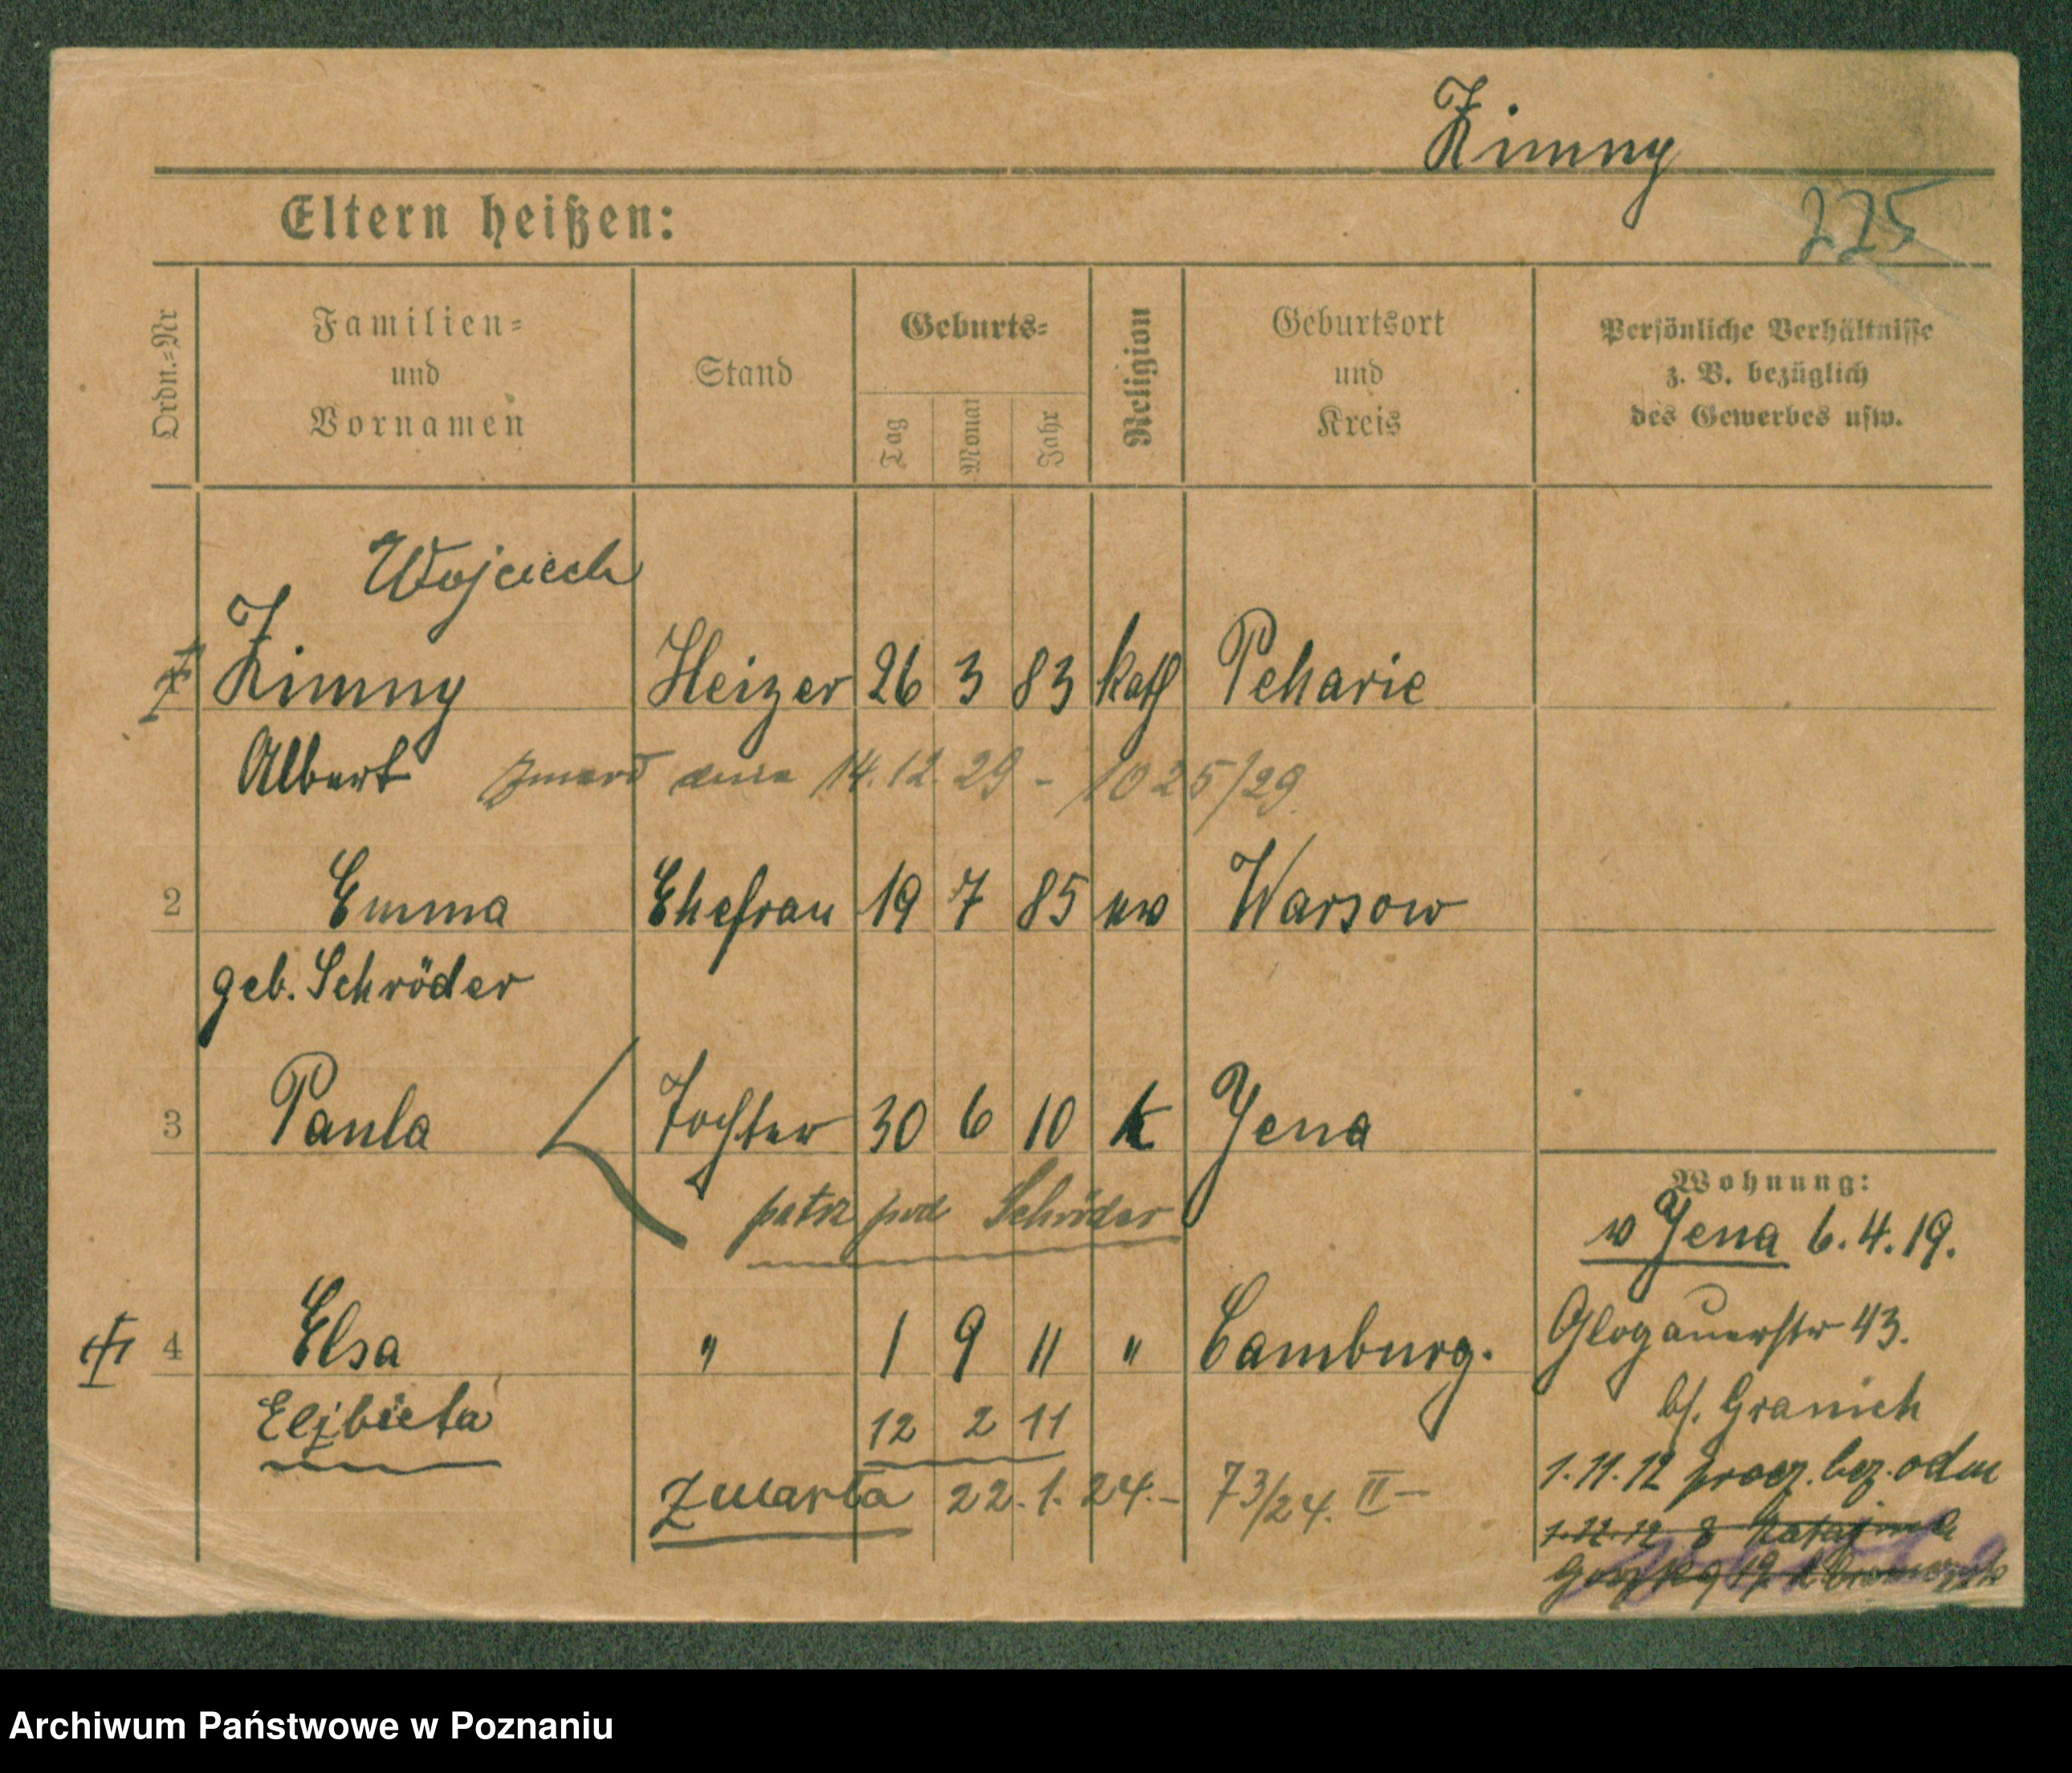 Zimny
225
Eltern heißen:
Ordn.=Nr
Familien=
und
Vornamen
Stand
Geburts=
Tag
Monat
Jahr
Religion
Geburtsort
und
Kreis
Persönliche Verhältnisse
z. B. bezüglich
des Gewerbes usw.
Wojciech
Zimny Heizer 26 3 83 kath Peharie
Albert zmarł dnia 14.12.29 - 1025/29
2 Emma Ehefrau 19 7 85 Warsow
geb. Schröder
3 Paula Tochter 30 6 10 k Jena
patrz pod Schröder
Wohnung:
v Jena 6.4.19.
4 Elsa " 1 9 11 " Camburg.
Glogauerstr 43.
Elżbieta 12 2 11
b/. Granich
zmarła 22.1.24.- 73/24. II -
1.11.12 bez. odm
1.12.12 8
19
Archiwum Państwowe w Poznaniu